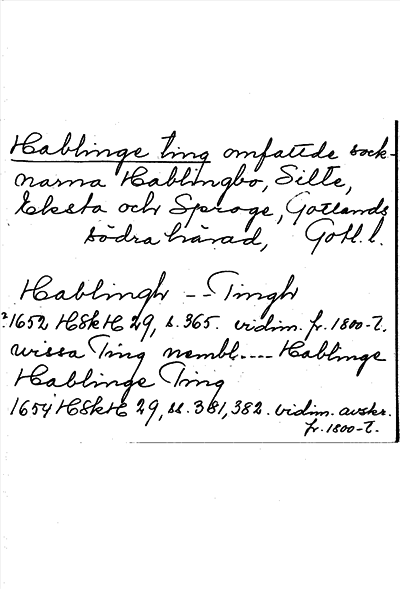 Hablinge ting omfattde sock-
narna Hablingbo, Silte,
Eksta och Sproge, Gotlands
södra härad, Gotl. l.
Hablingh -- Tingh
1652 HSkH 29, s. 365. vidim. fr. 1800-t.
wissa Ting nembl.... Hablinge
Hablinge Ting
1654 HSkH 29, ss. 381, 382. vidim. avskr.
fr. 1800-t.